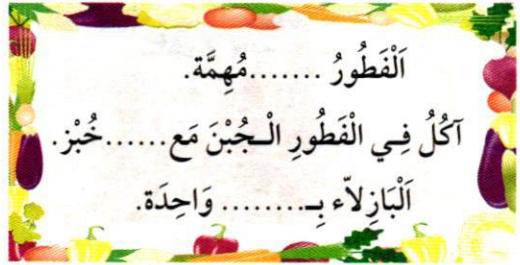 اَلْفَطُورُ .......مُهِمَّة.
آكُلُ فِي الْفَطُورِ الْجُبْنَ مَع......خُبْز.
اَلْبَازِلاَّء بِـ........ وَاحِدَة.